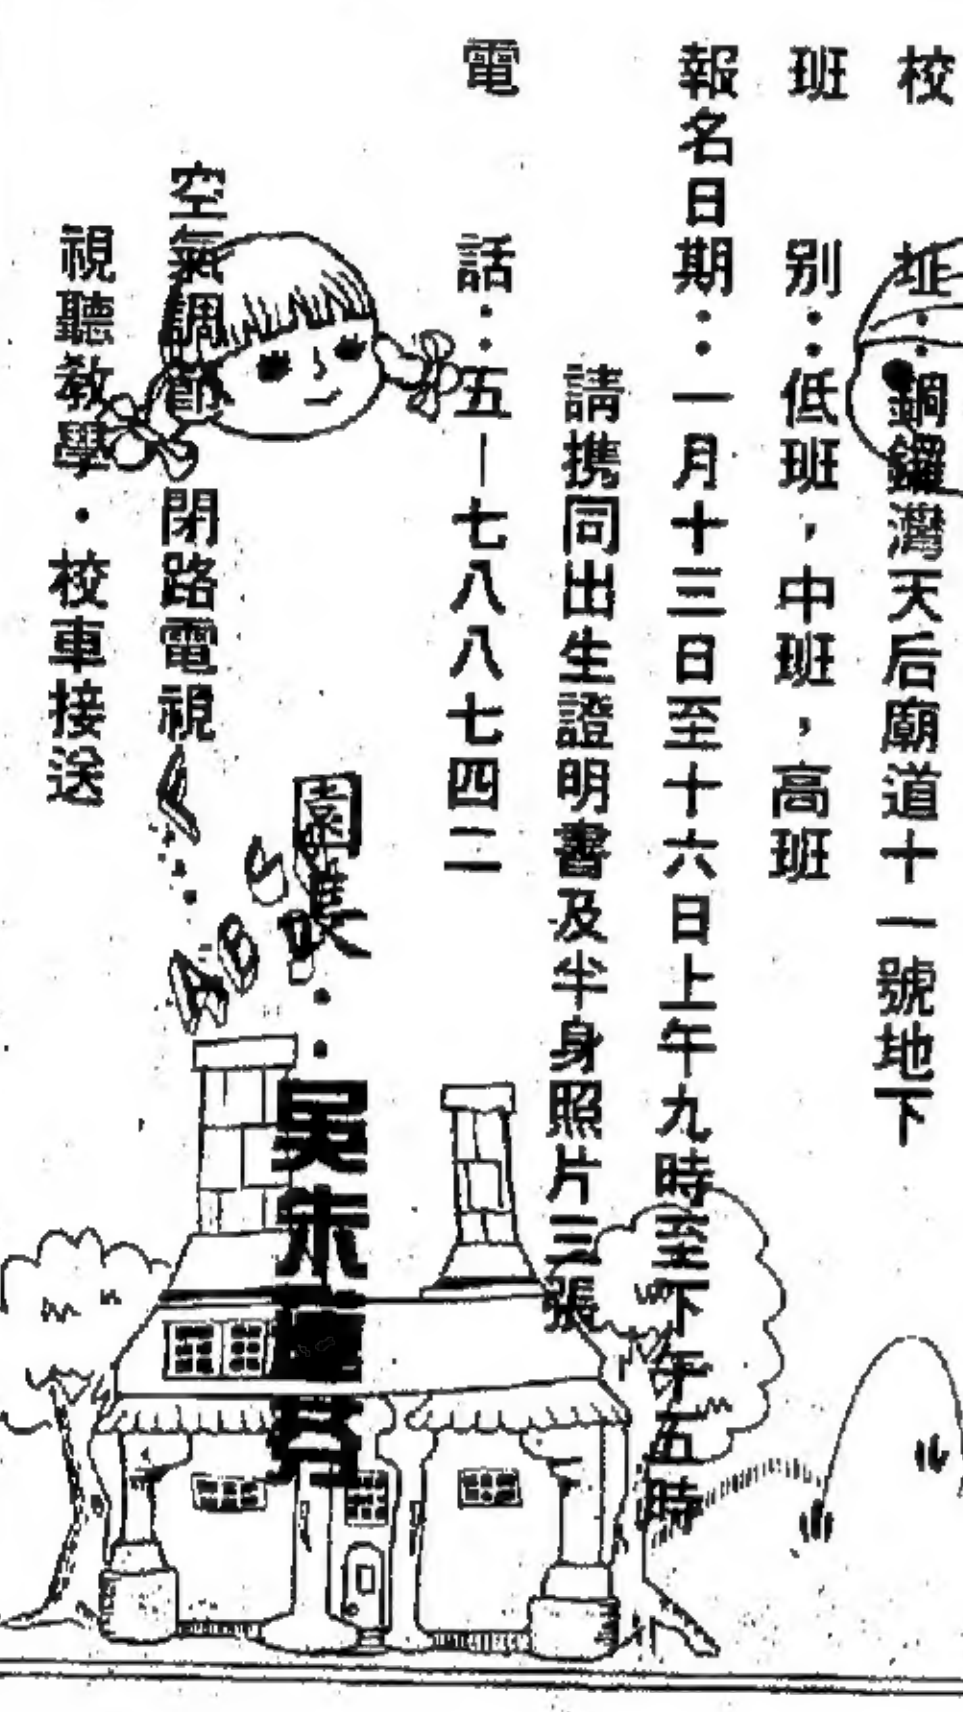 校址：銅鑼灣天后廟道十一號地下
班別：低班，中班，高班
報名日期：一月十三日至十六日上午九時至下午五時
請携同出生證明書及半身照片三張
電話：五－七八八七四二
園長：吳朱
空氣調節 閉路電視
視聽教學・校車接送
ABC